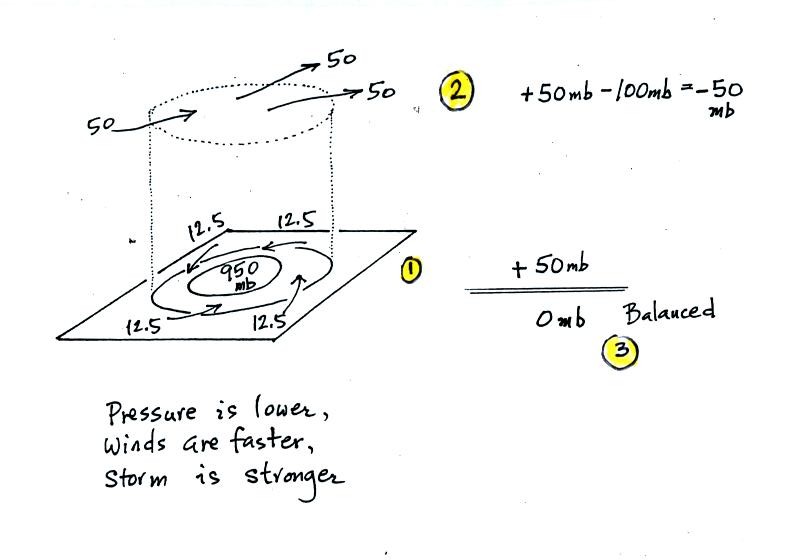 50
50
50
2
+50mb -100mb = -50
mb
12.5
12.5
950
mb
1
+50mb
12.5
12.5
0mb Balanced
3
Pressure is lower,
Winds are faster,
Storm is stronger